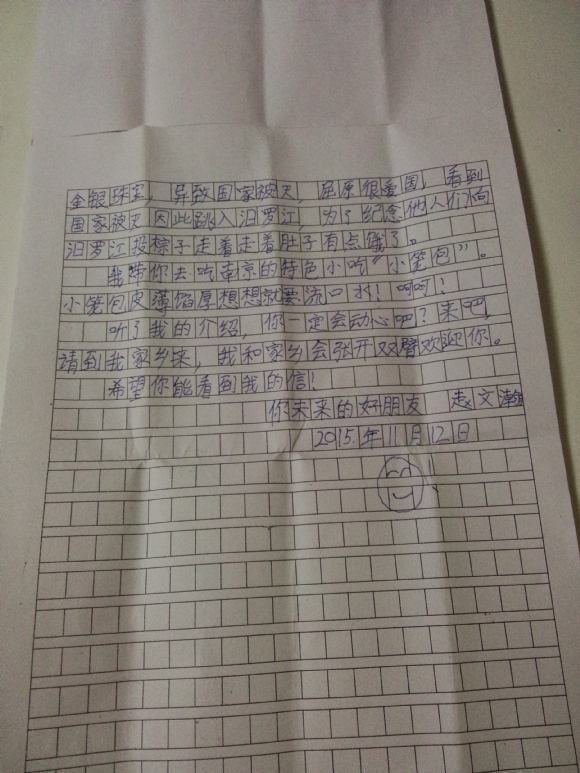 金银珠宝，导致国家被灭，屈原很爱国，看到
国家被灭因此跳入汨罗江，为了纪念他人们向
汨罗江投粽子走着走着肚子有点饿了。
我带你去吃南京的特色小吃“小笼包”。
小笼包皮薄馅厚想想就要流口水！呵呵！
听了我的介绍，你一定会动心吧？来吧，
请到我家乡来，我和家乡会张开双臂欢迎你。
希望你能看到我的信！
你未来的好朋友 赵文瀚
2015.年11月12日